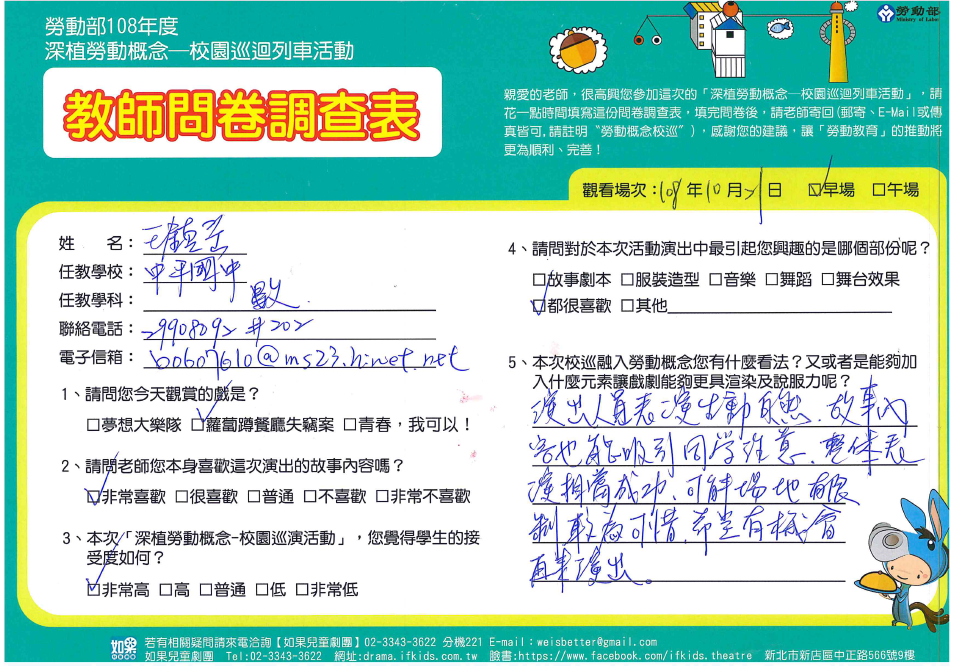 勞動部
Ministry of Labor
勞動部108年度
深植勞動概念—校園巡迴列車活動
教師問卷調查表
親愛的老師，很高興您參加這次的「深植勞動概念—校園巡迴列車活動」，請
花一點時間填寫這份問卷調查表，填完問卷後，請老師寄回(郵寄、E-Mail或傳
真皆可,請註明〝勞動概念校巡〞)，感謝您的建議，讓「勞動教育」的推動將
更為順利、完善！
觀看場次：108年10月21日 ☑早場 □午場
姓　　名：王鎮
任教學校：中平國中
任教學科：數
聯絡電話：29908092 #202
電子信箱：b0607610@ms23.hinet.net
1、請問您今天觀賞的戲是？
□夢想大樂隊 ☑蘿蔔蹲餐廳失竊案 □青春，我可以！
2、請問老師您本身喜歡這次演出的故事內容嗎？
☑非常喜歡 □很喜歡 □普通 □不喜歡 □非常不喜歡
3、本次「深植勞動概念-校園巡演活動」，您覺得學生的接
受度如何？
☑非常高 □高 □普通 □低 □非常低
4、請問對於本次活動演出中最引起您興趣的是哪個部份呢？
□故事劇本 □服裝造型 □音樂 □舞蹈 □舞台效果
☑都很喜歡 □其他
5、本次校巡融入勞動概念您有什麼看法？又或者是能夠加
入什麼元素讓戲劇能夠更具渲染及說服力呢？
演出人員表演生動自然、故事內
容也能吸引同学注意、整体表
演相當成功、可惜場地有限
制較為可惜、希望有機會
再來演出。
如果
若有相關疑問請來電洽詢【如果兒童劇團】02-3343-3622 分機221 E-mail：weisbetter@gmail.com
如果兒童劇團 Tel:02-3343-3622 網址:drama.ifkids.com.tw 臉書:https://www.facebook.com/ifkids.theatre 新北市新店區中正路566號9樓